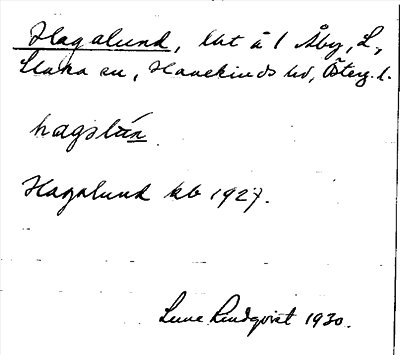 Hagalund, lht å 1 Åby, L.,
Slaka sn, Hanekinds hd, Östergl.
hagslún
Hagalund kb 1927.
Sune Lindqvist 1930.